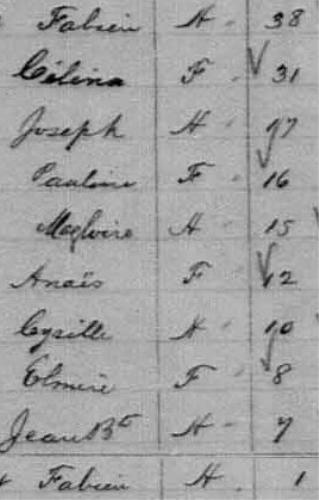 Fabien H 38
Célina F 31
Joseph H 17
Pauline F 16
Magloire H 15
Anaïs F 12
Cyrille H 10
Elmire F 8
Jean Bte H 7
Fabien H 1